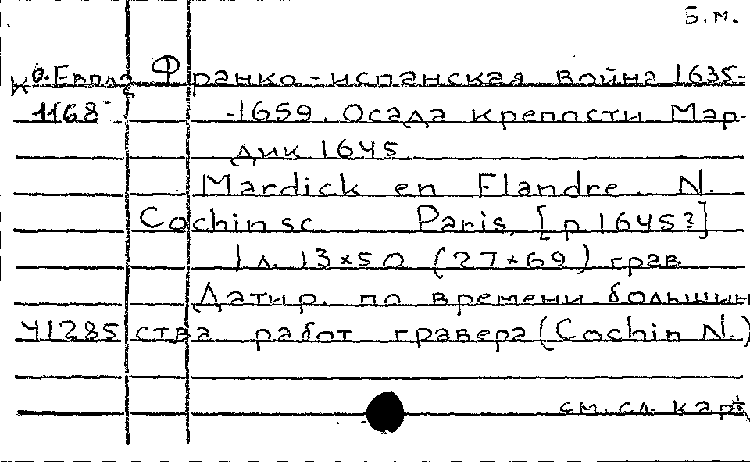 Б.м.
К О.Европа Франко-испанская война 1635-
1168 -1659. Осада крепости Мар-
дик 1645
Mardick en Flandre. N.
Cochin sc Paris, [p 1645?]
1 л. 13×50 (27×69) грав
Датир. по времени большин
41285 ства работ гравера (Cochin N.)
см. сл. карт